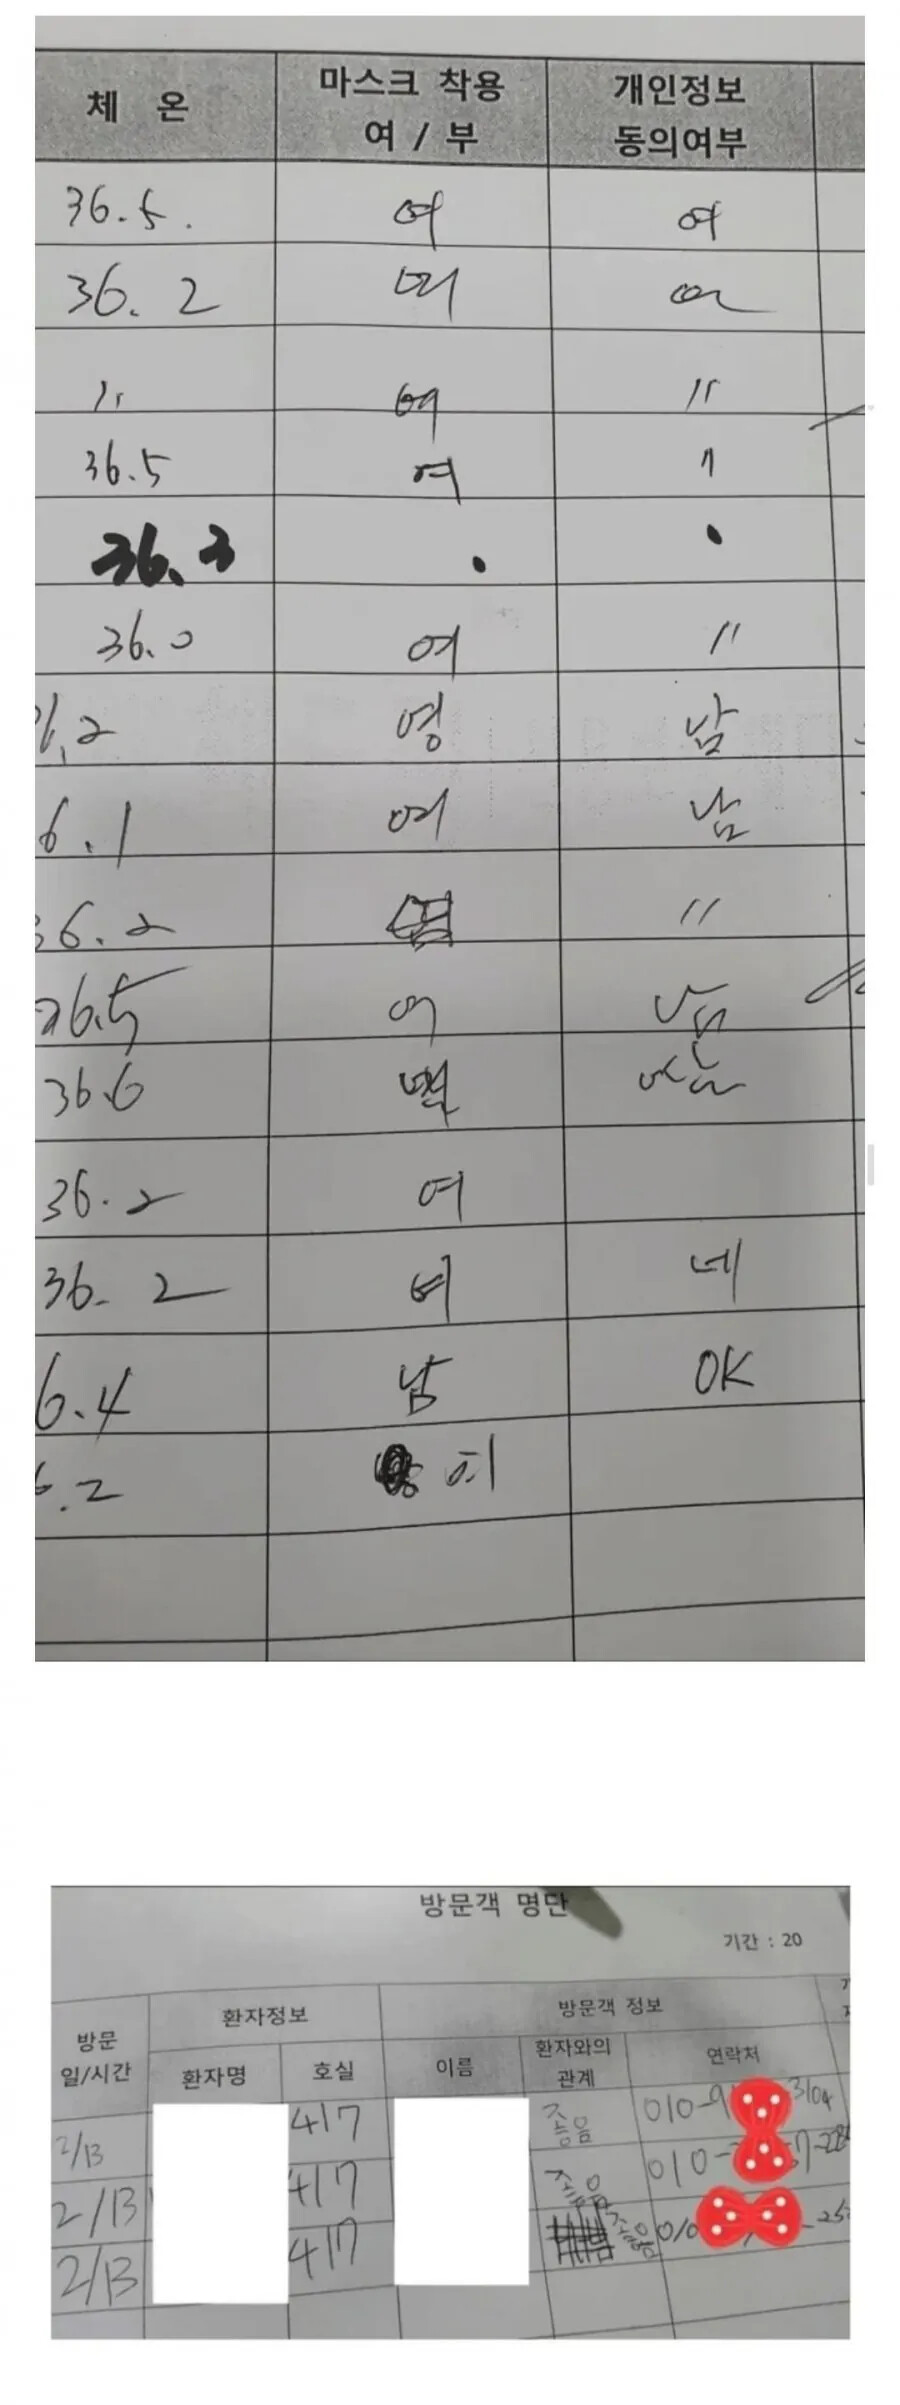 체 온 마스크 착용 여 / 부 개인정보 동의여부
36.5. 여 여
36. 2 여
〃 여 〃
36.5 여 〃
36.3 . .
36.0 여 〃
영 남
6.1 여 남
36.2 〃
36.5 여 남
36.6
36.2 여
36. 2 여 네
6.4 남 OK
.2 여
방문객 명단
기간 : 20
방문 일/시간 환자정보 방문객 정보
환자명 호실 이름 환자와의 관계 연락처
2/13 417 좋음 010-9 3104
2/13 417 010-
2/13 417 010